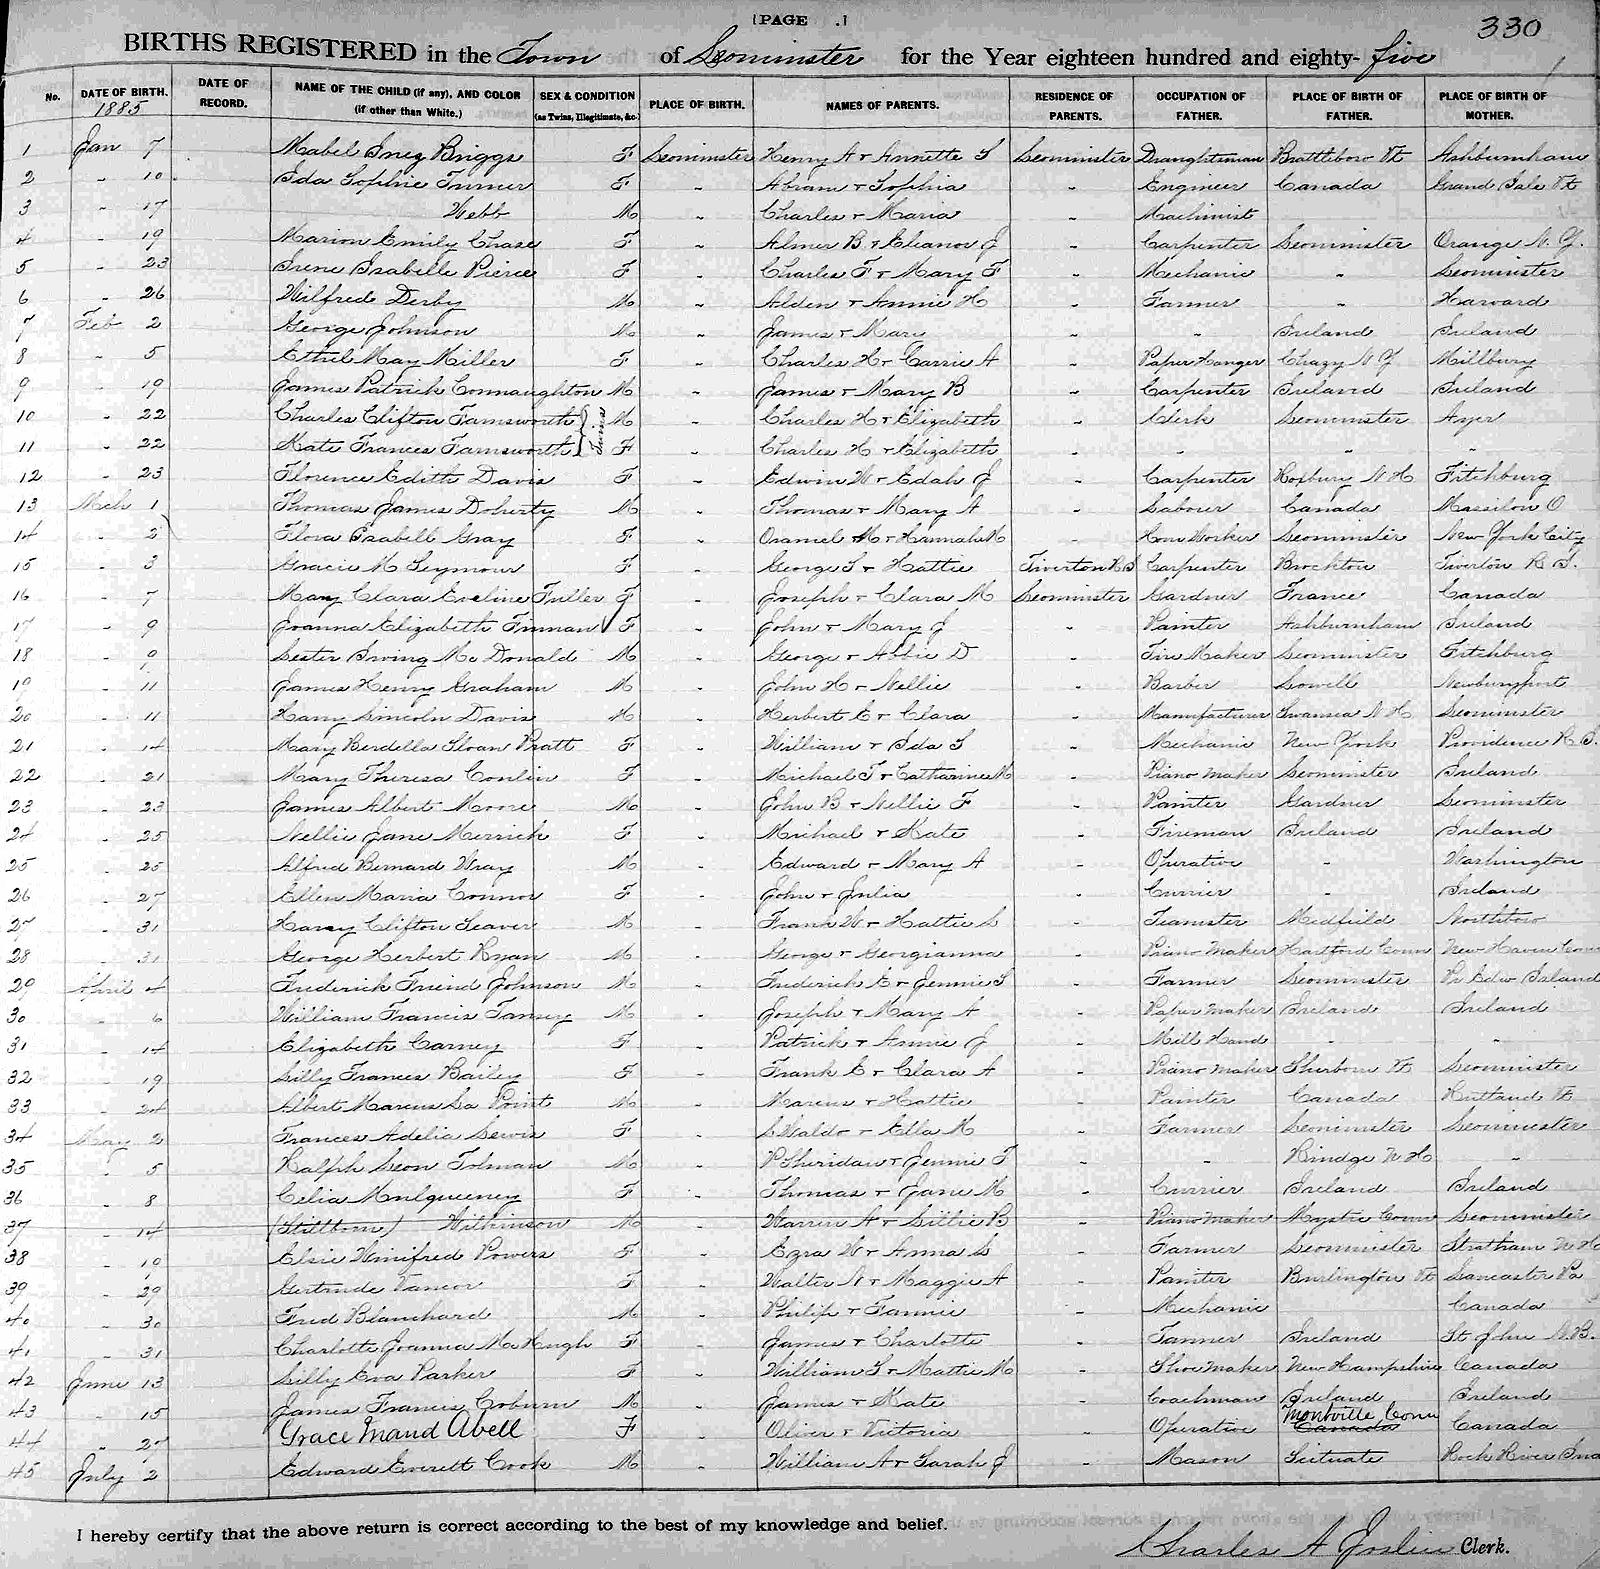 (PAGE .)
330
BIRTHS REGISTERED in the Town of Leominster for the Year eighteen hundred and eighty-five
No. DATE OF BIRTH. 1885 DATE OF RECORD. NAME OF THE CHILD (if any), AND COLOR (if other than White.) SEX & CONDITION (as Twins, Illegitimate, &c.) PLACE OF BIRTH. NAMES OF PARENTS. RESIDENCE OF PARENTS. OCCUPATION OF FATHER. PLACE OF BIRTH OF FATHER. PLACE OF BIRTH OF MOTHER.
1 Jan 7 Mabel Inez Briggs F Leominster Henry A & Annette S Leominster Draughtsman Brattleboro Vt Ashburnham
2 " 10 Ida Sophie Turner F " Abram & Sophia " Engineer Canada Grand Isle Vt
3 " 17 Webb M " Charles & Maria " Machinist
4 " 19 Marion Emily Chase F " Almer B & Eleanor J " Carpenter Leominster Orange N.J.
5 " 23 Irene Isabelle Pierce F " Charles F & Mary F " Mechanic " Leominster
6 " 26 Wilfred Derby M " Alden & Annie H " Farmer " Harvard
7 Feb 2 George Johnson M " James & Mary " " Ireland Ireland
8 " 5 Ethel May Miller F " Charles H & Carrie A " Paper Hanger Chazy N Y Millbury
9 " 19 James Patrick Connaughton M " James & Mary B " Carpenter Ireland Ireland
10 " 22 Charles Clifton Farnsworth } Twins M " Charles H & Elizabeth " Clerk Leominster Ayer
11 " 22 Kate Frances Farnsworth } F " Charles H & Elizabeth " " " "
12 " 23 Florence Edith Davis F " Edwin W & Edah J " Carpenter Roxbury N H Fitchburg
13 Mch 1 Thomas James Doherty M " Thomas & Mary A " Laborer Canada Massilon O
14 " 2 Flora Isabell Gray F " Oramel M & Hannah M " Horn Worker Leominster New York City
15 " 3 Gracie M Seymour F " George S & Hattie Tiverton R I Carpenter Brockton Tiverton R I.
16 " 7 Mary Clara Eveline Fuller F " Joseph & Clara M Leominster Gardner France Canada
17 " 9 Joanna Elizabeth Finnan F " John & Mary J " Painter Ashburnham Ireland
18 " 9 Lester Irving McDonald M " George & Abbie D " Tire Maker Leominster Fitchburg
19 " 11 James Henry Graham M " John H & Nellie " Barber Lowell Newburyport
20 " 11 Harry Lincoln Davis M " Herbert E & Clara " Manufacturer Swansea N H Leominster
21 " 14 Mary Berdella Sloan Pratt F " William & Ida S " Mechanic New York Providence R I.
22 " 21 Mary Theresa Conlin F " Michael F & Catharine M " Piano Maker Leominster Ireland
23 " 23 James Albert Moore M " John B & Nellie F " Painter Gardner Leominster
24 " 25 Nellie Jane Merrick F " Michael & Kate " Fireman Ireland Ireland
25 " 25 Alfred Bernard Wray M " Edward & Mary A " Operative " Washington
26 " 27 Ellen Maria Connor F " John & Julia " Currier " Ireland
27 " 31 Harry Clifton Seaver M " Frank W & Hattie L " Teamster Medfield Northboro
28 " 31 George Herbert Ryan M " George & Georgianna " Piano Maker Hartford Conn New Haven Conn
29 April 4 Frederick Friend Johnson M " Frederick E & Jennie S " Farmer Leominster Pr Edw Island
30 " 6 William Francis Tansey M " Joseph & Mary A " Paper Maker Ireland Ireland
31 " 14 Elizabeth Carney F " Patrick & Annie J " Mill Hand " "
32 " 19 Lilly Frances Bailey F " Frank E & Clara A " Piano Maker Sherborn Vt Leominster
33 " 24 Albert Marcus La Point M " Marcus & Hattie " Painter Canada Rutland Vt
34 May 2 Frances Adelia Lewis F " L Waldo & Ella M " Farmer Leominster Leominster
35 " 5 Ralph Leon Tolman M " P Sheridan & Jennie F " " Rindge N H "
36 " 8 Celia Mulqueeney F " Thomas & Jane M " Currier Ireland Ireland
37 " 14 (Stillborn) Wilkinson M " Warren A & Lillie B " Piano Maker Mystic Conn Leominster
38 " 19 Elsie Winifred Powers F " Ezra W & Anna L " Farmer Leominster Stratham N H
39 " 29 Gertrude Vancor F " Walter N & Maggie A " Painter Burlington Vt Lancaster Pa
40 " 30 Fred Blanchard M " Philip & Fannie " Mechanic Canada
41 " 31 Charlotte Joanna McHugh F " James & Charlotte " Tanner Ireland St John N.B.
42 June 13 Lilly Eva Parker F " William S & Mattie M " Shoe Maker New Hampshire Canada
43 " 15 James Francis Coburn M " James & Kate " Coachman Ireland Ireland
44 " 27 Grace Maud Abell F " Oliver & Victoria " Operative Montville Conn Canada Canada
45 July 2 Edward Everett Cook M " William A & Sarah J " Mason Scituate Rock River Ind
I hereby certify that the above return is correct according to the best of my knowledge and belief.
Charles A Joslin Clerk.